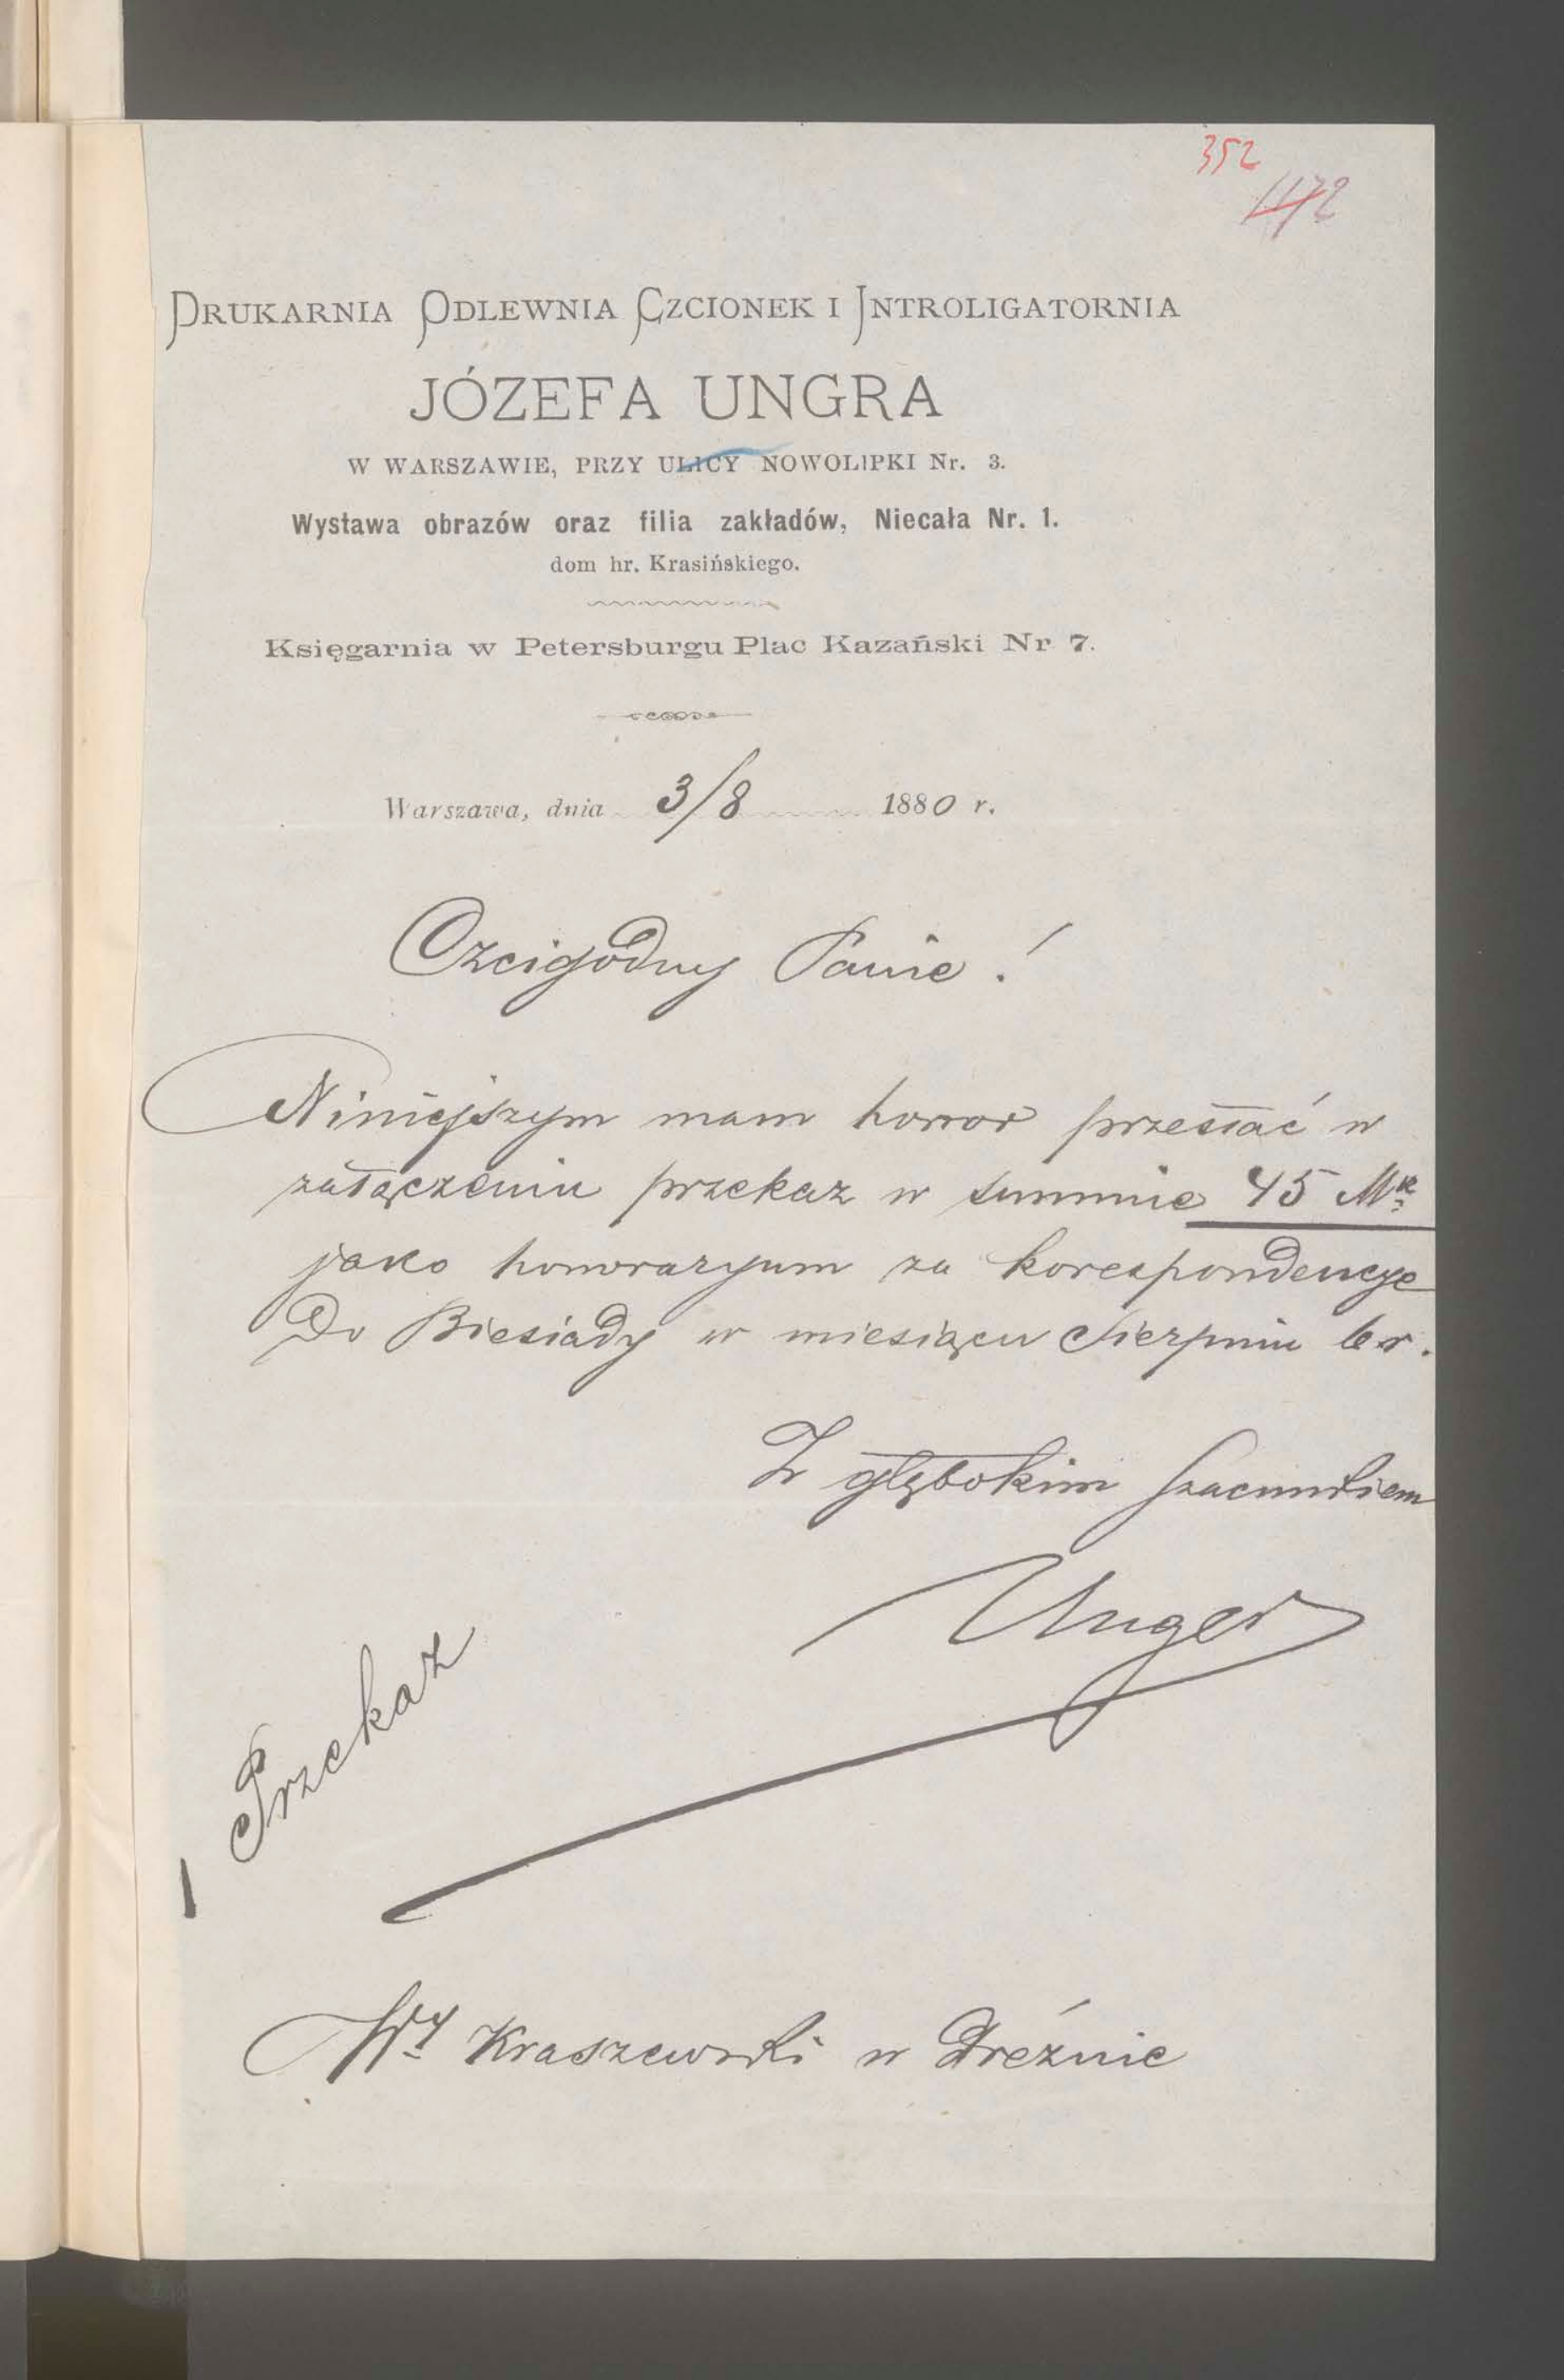 352
1172
DRUKARNIA ODLEWNIA CZCIONEK I INTROLIGATORNIA
JÓZEFA UNGRA
W WARSZAWIE, PRZY ULICY NOWOLIPKI Nr. 3.
Wystawa obrazów oraz filia zakładów, Niecała Nr. 1.
dom hr. Krasińskiego.
Księgarnia w Petersburgu Plac Kazański Nr 7.
Warszawa, dnia 3/8 1880 r.
Czcigodny Panie!
Niniejszym mam honor przesłać w
załączeniu przekaz w summie 45 Mk
jako honoraryum za korespondencye
Do Biesiady w miesiącu Sierpniu br.
Z głębokim szacunkiem
Unger
1 Przekaz
WY Kraszewski w Dreźnie